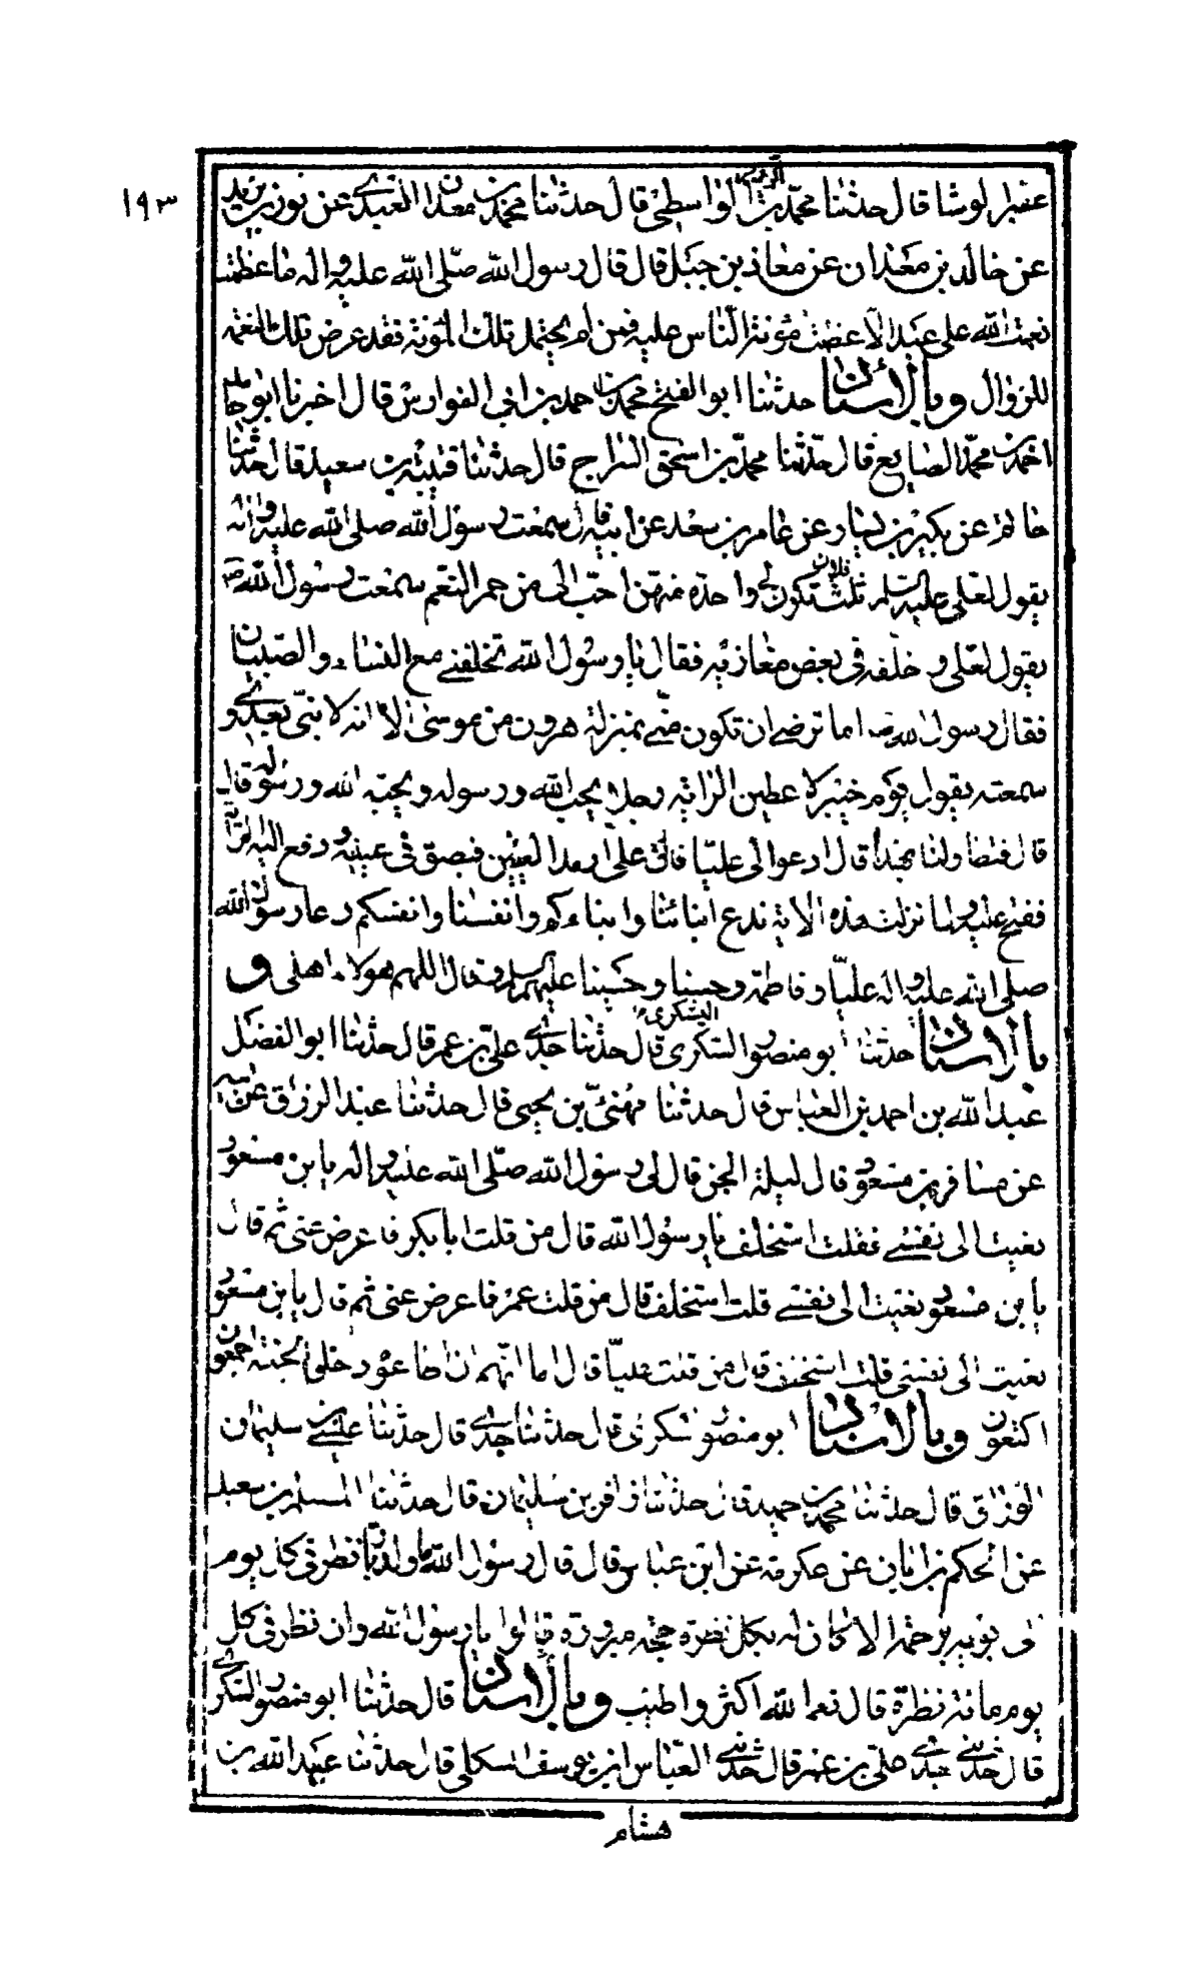 ١٩٣
عنبر الوشا قال حدثنا محمد بن الواسطي قال حدثنا محمد بن معدان العبدي عن ثور بن يزيد
عن خالد بن معدان عن معاذ بن جبل قال قال رسول الله صلى الله عليه واله ما عظمت
نعمت الله على عبد الا عظمت مؤنة الناس عليه فمن لم يحتمل تلك المؤنة فقد عرض تلك النعمه
للزوال وبالاسناد حدثنا ابو الفتح محمد بن احمد بن ابي الفوارس قال اخبرنا ابو حامد
احمد بن محمد الصايغ قال حدثنا محمد بن اسحق السراج قال حدثنا قتيبة بن سعيد قال حدثنا
حاتم عن بكير بن يسار عن عامر بن سعد عن ابيه قال سمعت رسول الله صلى الله عليه واله
يقول لعلى عليه السلم ثلث فلان تكون لي واحدة منهن احب الى من حمر النعم سمعت رسول الله ص
يقول لعلى وخلفه في بعض مغازيه فقال يا رسول الله تخلفني مع النساء والصبيان
فقال رسول الله ص اما ترضى ان تكون مني بمنزلة هرون من موسى الا انه لا نبي بعدي و
سمعته يقول يوم خيبر لا عطين الراية رجلا يحب الله ورسوله ويحبه الله ورسوله قال
قال فتطاولنا بهذا قال ادعوا لى عليا فاتى على ارمد العينين فبصق في عينيه ودفع اليه الراية
ففتح عليه ولما نزلت هذه الاية ندع ابنائنا وابناءكم وانفسنا وانفسكم دعا رسول الله
صلى الله عليه واله عليا وفاطمة وحسنا وحسينا عليهم السلم وقال اللهم هولاء اهلى و
بالاسناد حدثنا ابو منصور السكرى اليشكرى قال حدثنا جدي على بن عمر قال حدثنا ابو الفضل
عبد الله بن احمد بن العباس قال حدثنا مهنى بن يحيى قال حدثنا عبد الرزاق عن ابيه
عن مسافر بن مسعود قال ليلة الجن قال لى رسول الله صلى الله عليه واله يا بن مسعود
نعيت الى نفسي فقلت استخلف يا رسول الله قال من قلت ابا بكر فاعرض عنى ثم قال
يا بن مسعود نعيت الى نفسي قلت استخلف قال من قلت عمر فاعرض عنى ثم قال يا بن مسعود
نعيت الى نفسي قلت استخلف قال من قلت عليا قال اما انهم ان اطاعوه دخلوا الجنة اجمعون
اكتعون وبالاسناد ابو منصور السكرى قال حدثنا جدي قال حدثنا عيسى بن سليمان
الوراق قال حدثنا محمد بن حميد قال حدثنا زافر بن سليمان قال حدثنا المسلم بن سعيد
عن الحكم بن ابان عن عكرمة عن ابن عباس قال قال رسول الله ما ولد بار نظر في كل يوم
الى بويه برحمة الا كان له بكل نظرة حجة مبرورة قالوا يا رسول الله وان نظر في كل
يوم مائة نظرة قال نعم الله اكثر واطيب وبالاسناد قال حدثنا ابو منصور السكري
قال حدثني جدي على بن عمر قال حدثني العباس بن يوسف الشكلى قال حدثنا عبيد الله بن
هشام